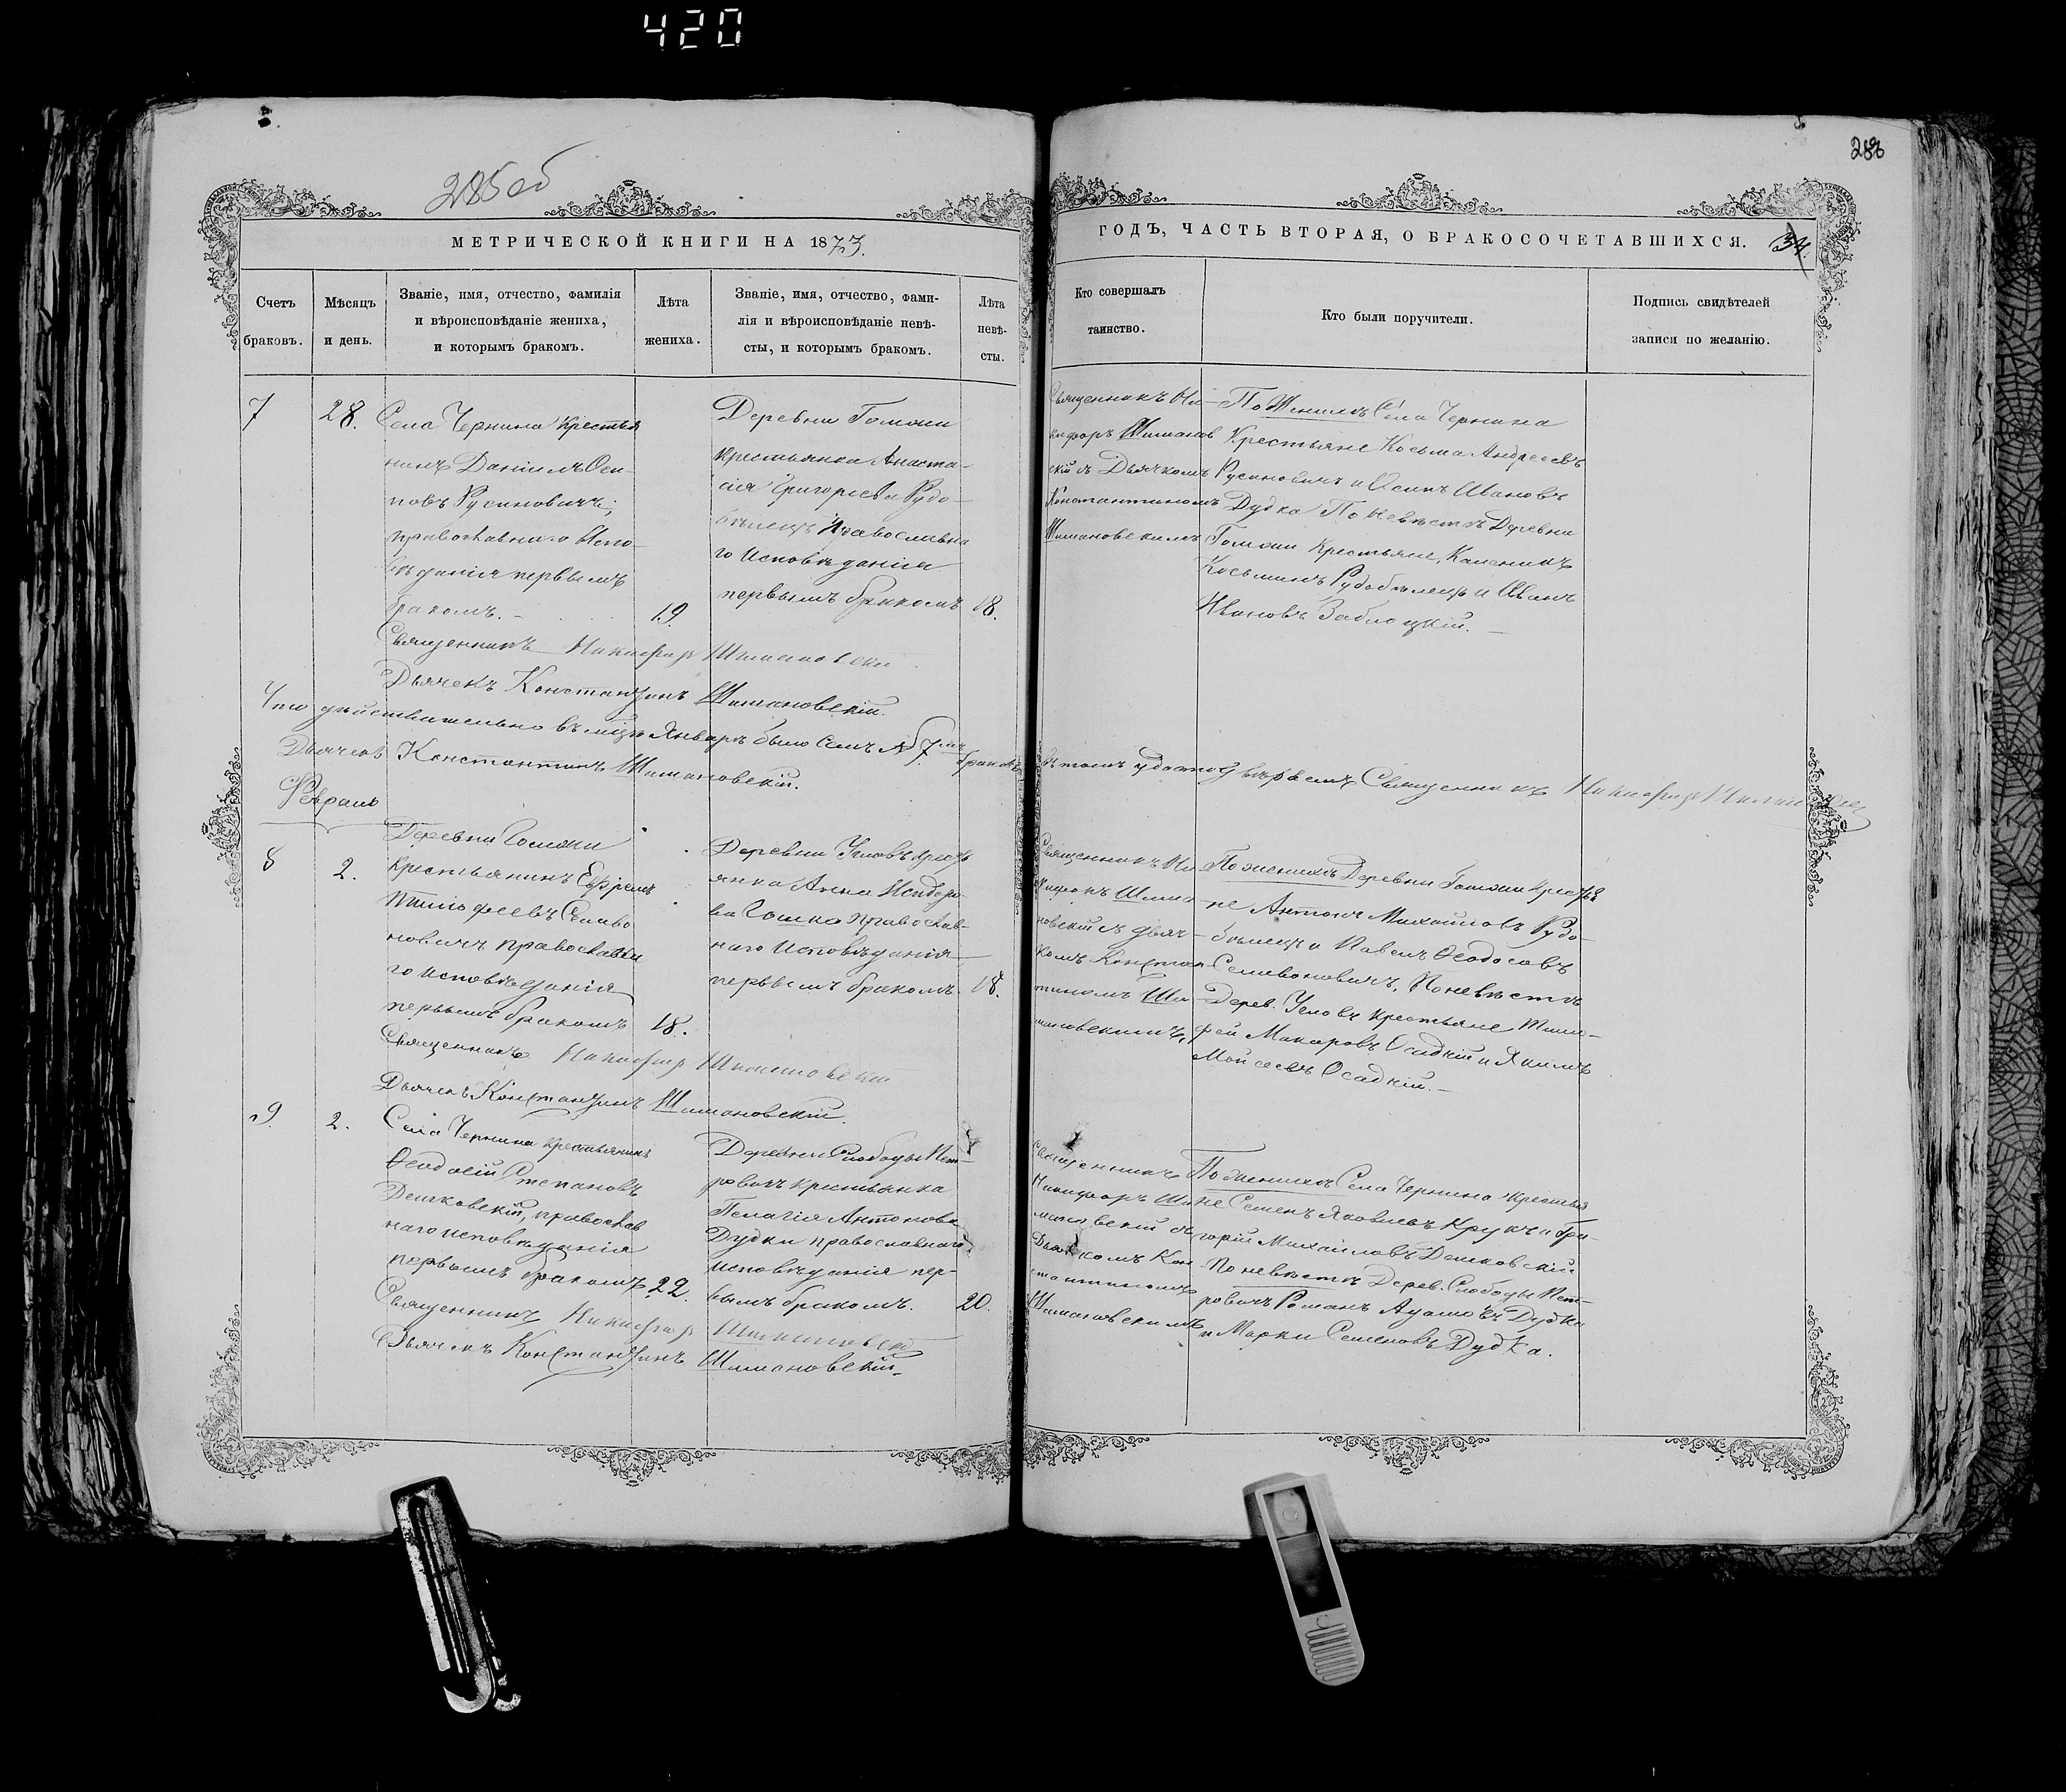 420
285 об
288
МЕТРИЧЕСКОЙ КНИГИ НА 1873.
ГОДЪ, ЧАСТЬ ВТОРАЯ, О БРАКОСОЧЕТАВШИХСЯ. 34.
Счетъ браковъ.
Мѣсяцъ и день.
Званіе, имя, отчество, фамилія
и вѣроисповѣданіе жениха,
и которымъ бракомъ.
Лѣта жениха.
Званіе, имя, отчество, фами-
лія и вѣроисповѣданіе невѣ-
сты, и которымъ бракомъ.
Лѣта
невѣ-
сты.
Кто совершалъ
таинство.
Кто были поручители.
Подпись свидѣтелей
записи по желанію.
7
28.
Села Чернина крестья
нинъ Даніилъ Оси-
повъ Русиновичъ,
православнаго Испо-
вѣданія первымъ
бракомъ.
19.
Деревни Гомзи
крестьянка Анаста-
сія Григорьева Рудо-
бѣлецъ Православна
го Исповѣданія
первымъ бракомъ
18.
Священникъ Ни-
кифоръ Шиманов
скій съ Дьячкомъ
Константиномъ
Шимановскимъ
По Женихѣ Села Чернина
Крестьяне Косьма Андреевъ
Русиновичъ и Осипъ Ивановъ
Дудка По Невѣстѣ Деревни
Гомзи Крестьяне,
Косьминъ Рудобѣлецъ и Иванъ
Ивановъ Заблоцкій.
Священникъ Никифоръ Шимановскій
Дьячекъ Константинъ Шимановскій.
Что дѣйствительно въ мцѣ Январѣ было семь 7 браковъ
въ томъ удостовѣряемъ Священникъ Никифоръ Шимановскій
Дьячекъ Константинъ Шимановскій.
Февраль
8
2.
Деревни Гомзи
крестьянинъ Ефремъ
Тимофеевъ Селиво
новичъ православна
го исповѣданія
первымъ бракомъ
18.
Деревни Угловъ крестья
янка Анна
ва Гошка православ-
наго Исповѣданія
первымъ бракомъ.
18.
Священникъ Ни
кифоръ Шима
новскій съ дьяч-
комъ Констан
тиномъ Ши
мановскимъ,
По женихѣ Деревни Гомзи крестья
не Антонъ Михайловъ Рудо-
бѣлецъ и Павелъ Ѳеодосовъ
Селивоновичъ, По невѣстѣ
Дерев. Угловъ крестьяне Тимо-
фей Макаровъ Осадкій и Якимъ
Мойсеевъ Осадкій.
Священникъ Никифоръ Шимановскій
Дьячекъ Константинъ Шимановскій.
9.
2.
Села Чернина крестьянинъ
Ѳеодосій Степановъ
Дешковскій, православ
наго исповѣданія
первымъ бракомъ
22.
Деревни Слободы Пет-
ровичъ крестьянка
Пелагія Антонова
Дудки православнаго
исповѣданія пер-
вымъ бракомъ.
20.
Священникъ
Никифоръ Ши
мановскій съ
Дьячкомъ Кон
стантиномъ
Шимановскимъ
По женихѣ Села Чернина крестья
не Семенъ Яковлевъ Крукъ и Гри-
горій Михайловъ Дешковскій
По невѣстѣ Дерев. Слободы Пет-
ровичъ Романъ Адамовъ Дудка
и Марко Семеновъ Дудка.
Священникъ Никифоръ Шимановскій
Дьячекъ Константинъ Шимановскій.